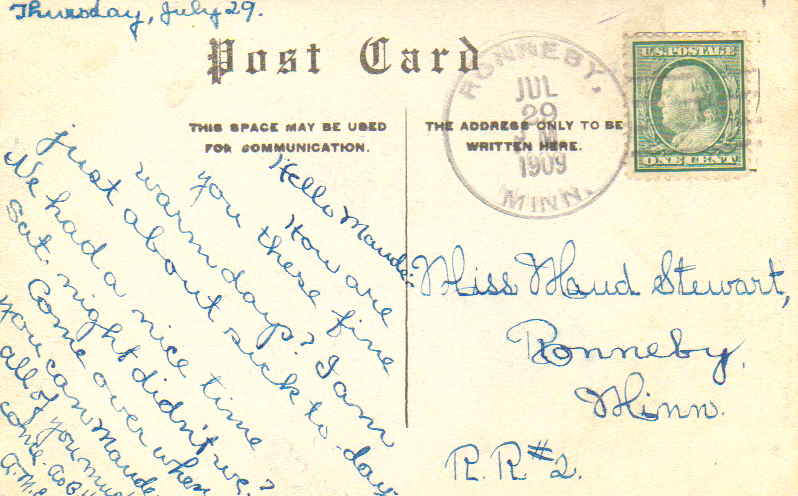 Thursday, July 29.
Post Card
THIS SPACE MAY BE USED
FOR COMMUNICATION.
THE ADDRESS ONLY TO BE
WRITTEN HERE.
RONNEBY,
JUL
29
1909
MINN.
U.S. POSTAGE
ONE CENT
Hello Maude:
How are
you these fine
warm days? I am
just about sick to-day
We had a nice time
Sat. night didn't we?
Come over when
you can Maude
all of you must
come.
A.M.
Miss Maud Stewart,
Ronneby,
Minn.
R.R #2.